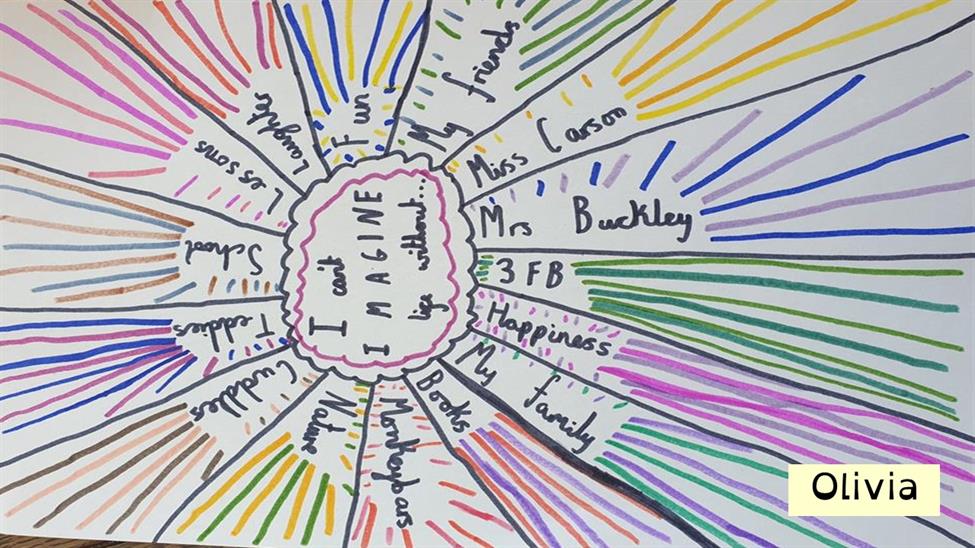 I can't
IMAGINE
life without...
Fun
My friends
Miss Carson
Mrs Buckley
3FB
Happiness
My family
Books
Monkeybars
Nature
Cuddles
Teddies
School
Lessons
Laughter
Olivia